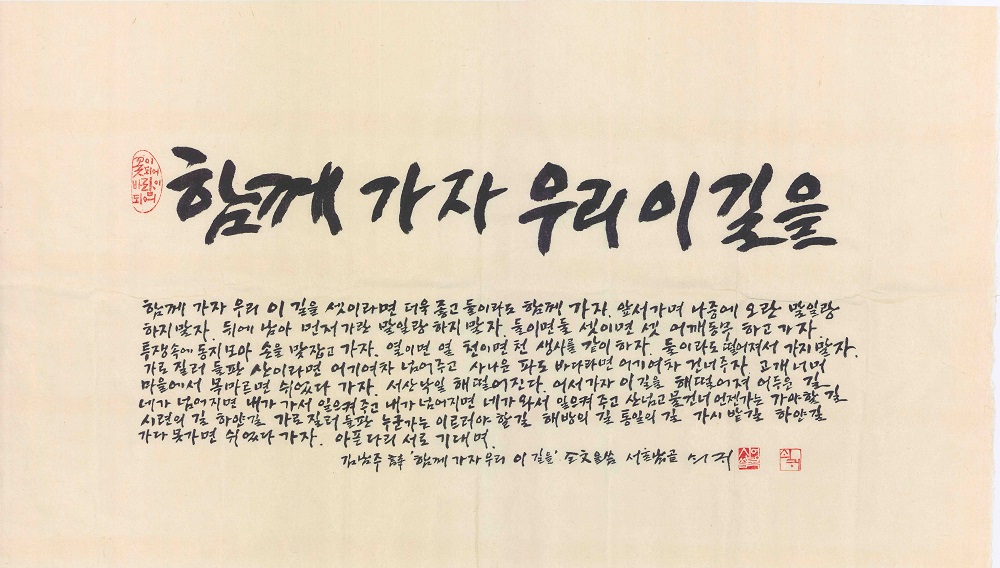 꽃이
되어
바람이
되어
함께 가자 우리 이 길을
함께 가자 우리 이 길을 셋이라면 더욱 좋고 둘이라도 함께 가자. 앞서가며 나중에 오란 말일랑
하지말자. 뒤에 남아 먼저 가란 말일랑 하지 말자. 둘이면 둘 셋이면 셋 어깨동무 하고 가자
투쟁속에 동지모아 손을 맞잡고 가자. 열이면 열 천이면 천 생사를 같이 하자. 둘이라도 떨어져서 가지말자.
가로질러 들판 산이라면 어기여차 넘어주고 사나운 파도 바다라면 어기여차 건너주자. 고개너머
마을에서 목마르면 쉬었다 가자. 서산낙일 해떨어진다. 어서가자 이 길을 해떨어져 어두운 길
네가 넘어지면 내가 가서 일으켜주고 내가 넘어지면 네가 와서 일으켜 주고 산넘고 물건너 언젠가는 가야할 길
시련의 길 하얀길 가로질러 들판 누군가는 이르러야 할 길 해방의 길 통일의 길 가시밭길 하얀길
가다 못가면 쉬었다 가자. 아픈 다리 서로 기대며.
김남주 詩 '함께 가자 우리 이 길을' 全文을 씀